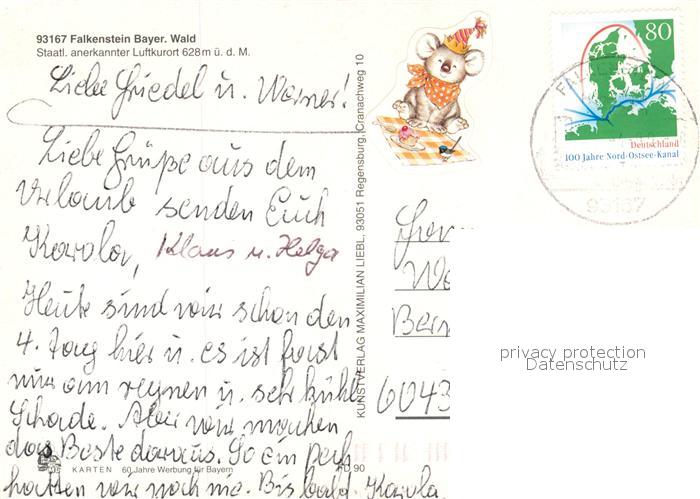 93167 Falkenstein Bayer. Wald
Staatl. anerkannter Luftkurort 628 m ü. d. M.
Liebe Friedel u. Werner!
Liebe Grüße aus dem
Urlaub senden Euch
Karola, Klaus u. Helga
Heute sind wir schon den
4. Tag hier u. es ist fast
nur am regnen u. sehr kühl
Schade. Aber wir machen
das Beste daraus. So ein pech
hatten wir noch nie. Bis bald Karola
KARTEN 60 Jahre Werbung für Bayern
90
KUNSTVERLAG MAXIMILIAN LIEBL, 93051 Regensburg, Cranachweg 10
80
Deutschland
100 Jahre Nord-Ostsee-Kanal
93167
6043
privacy protection
Datenschutz